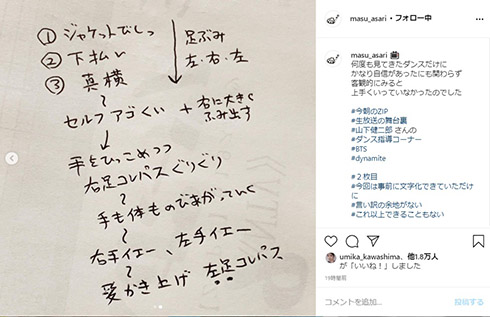 ① ジャケットでしっ
② 下払い
③ 真横
セルフアゴくい + 右に大きく
ふみ出す
足ぶみ
左・右・左
手をひっこめつつ
右足コンパスぐりぐり
手も体ものびあがっていく
右手イエー、左手イエー
愛かき上げ 左足コンパス
masu_asari・フォロー中
masu_asari
何度も見てきたダンスだけに
かなり自信があったにも関わらず
客観的にみると
上手くいっていなかったのでした
#今朝のZIP
#生放送の舞台裏
#山下健二郎 さんの
#ダンス指導コーナー
#BTS
#dynamite
#２枚目
#今回は事前に文字化できていただけ
に
#言い訳の余地がない
#これ以上できることもない
umika_kawashima、他1.8万人
が「いいね！」しました
19時間前
コメントを追加...
投稿する